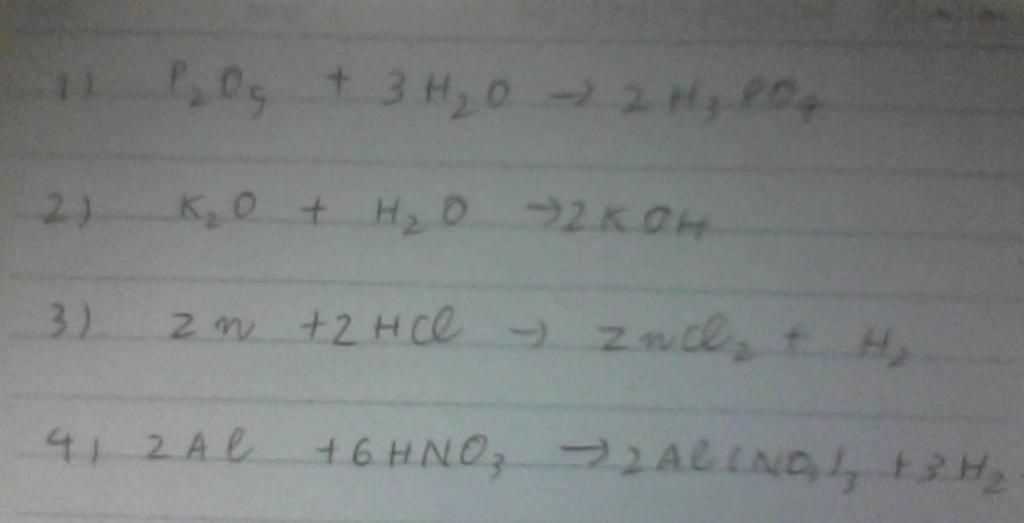 1) P₂O₅ + 3H₂O → 2H₃PO₄
2) K₂O + H₂O → 2KOH
3) Zn + 2HCl → ZnCl₂ + H₂
4) 2Al + 6HNO₃ → 2Al(NO₃)₃ + 3H₂